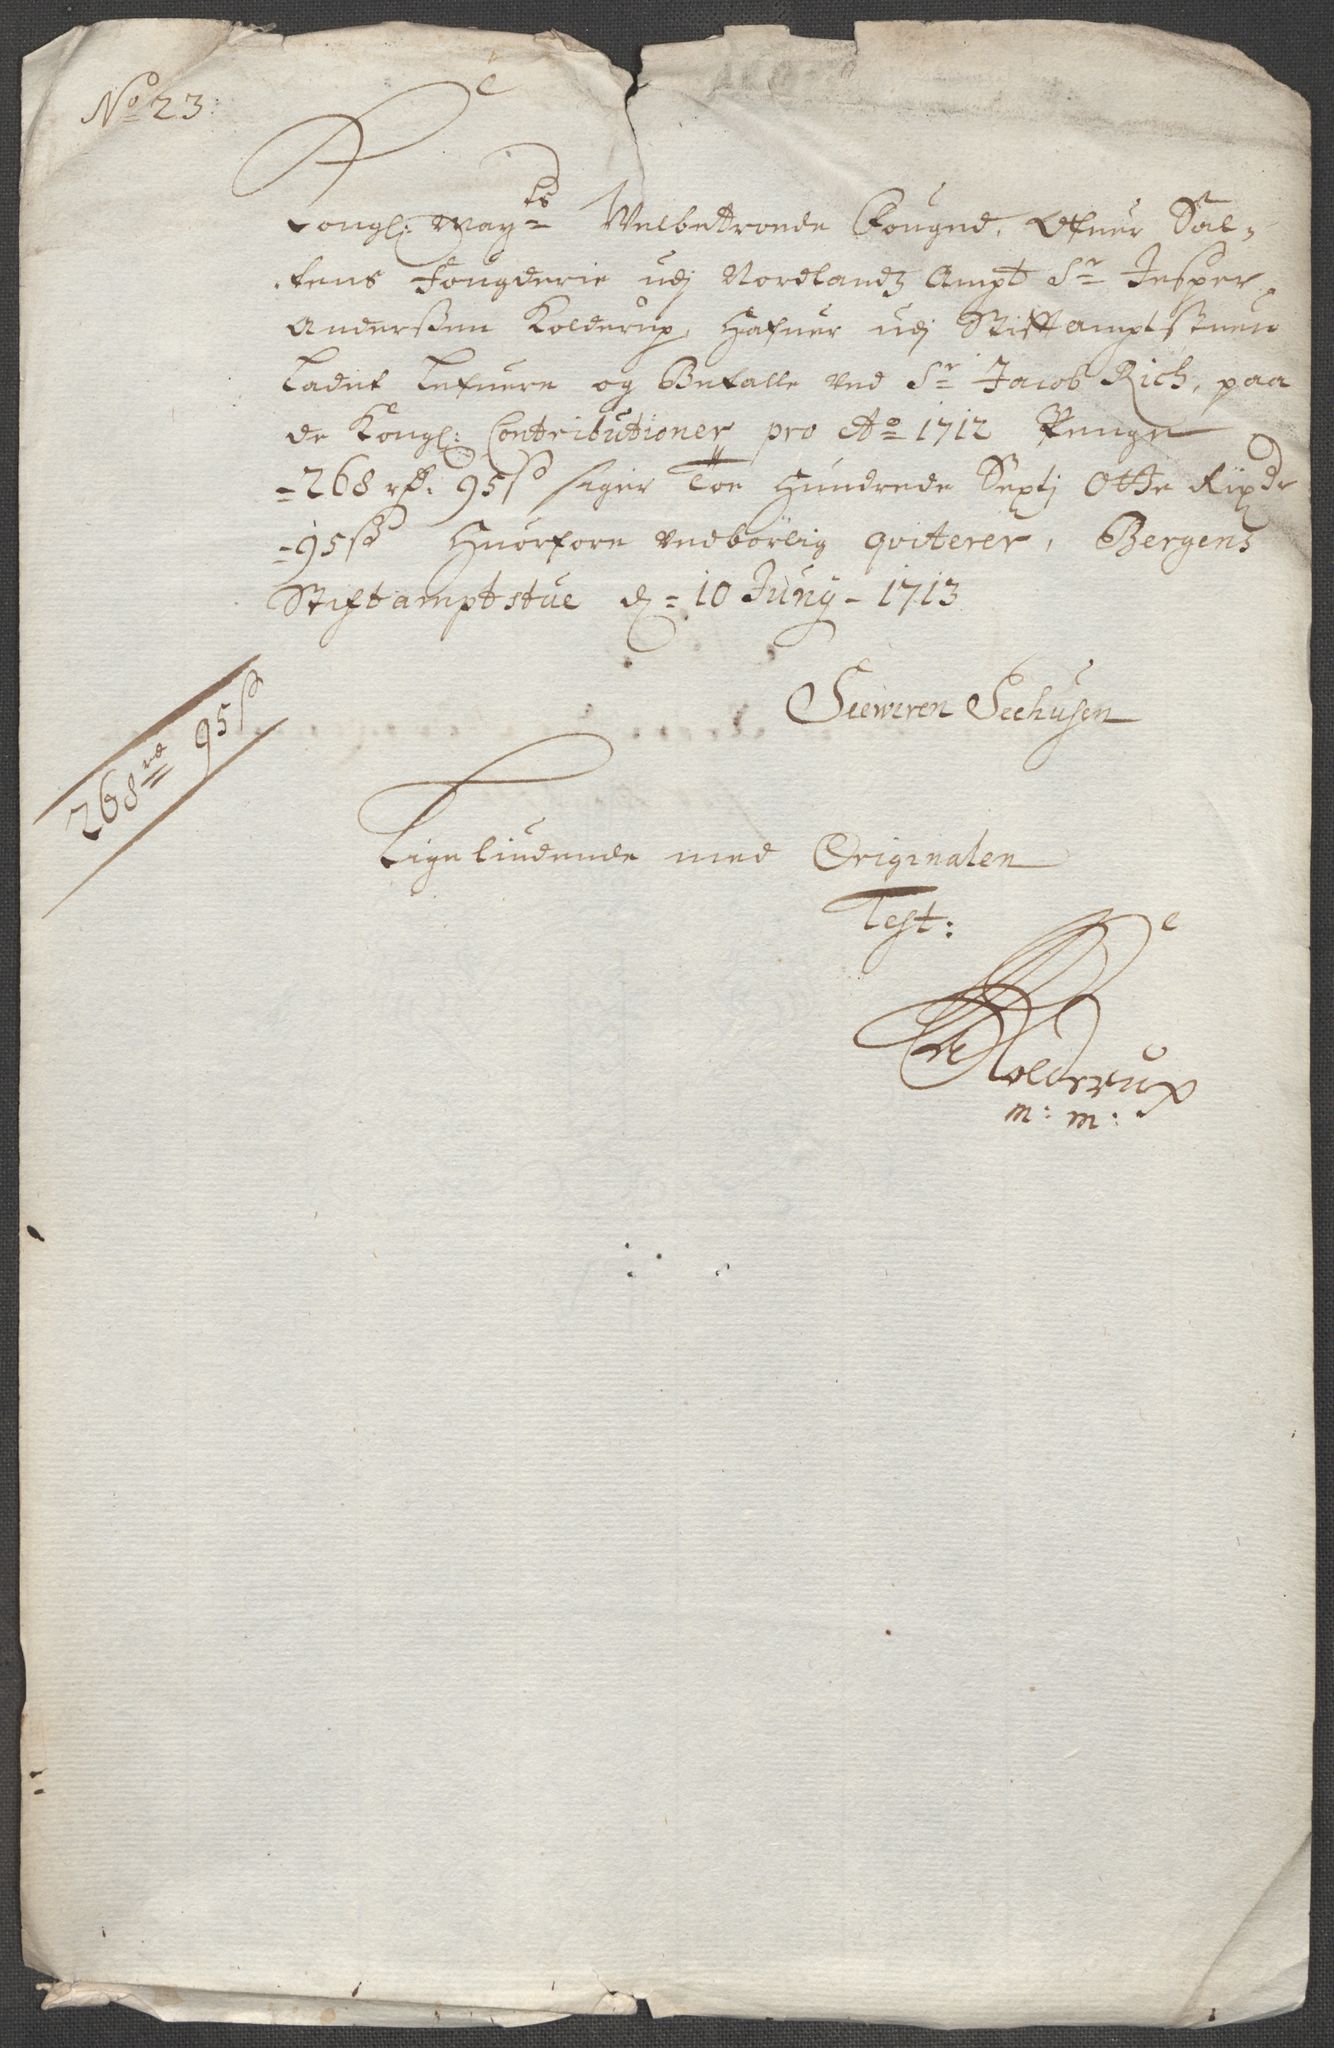 No 23:
Kongl: May:ts Velbetroede Fouged, Ofuer Sal-
tens Fougderie udj Nordlandz Ampt Sr Jesper
Anderssen Kolderup, Hafuer udj Stiftamptstuen
Ladet Lefuere og Betalle ved Sr Jacob Rich, paa
de Kongl: Contributioner pro Ao 1712 Penge
-268 rd: 95 s siger Toe Hundrede Sextj Otte Rixdr
-95 s Huorfore vedbörlig qviterer, Bergens
Stiftamptstue d= 10 Juny - 1713
Seeweren Seehusen
268 rd 95 s
Lige liudende med Originalen
Test:
Kolderup
m: m: